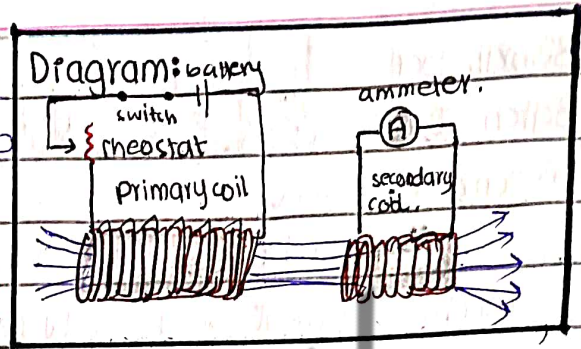 Diagram: battery
switch
rheostat
primary coil
ammeter.
A
secodary
coil..